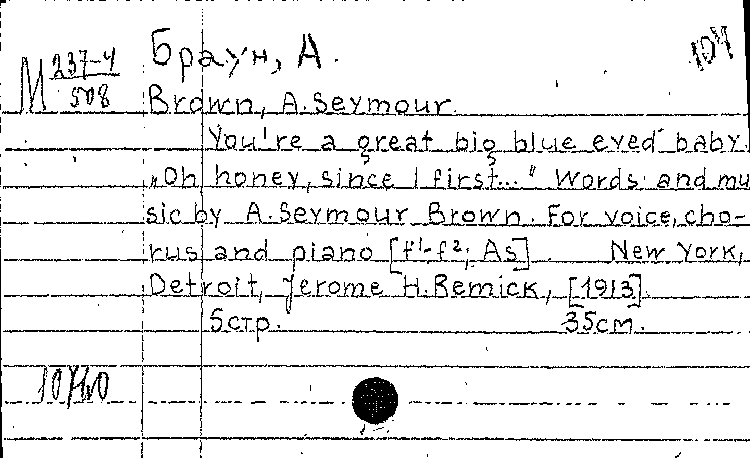 М 237-4/508
Браун, А.
104
Brown, A. Seymour.
You're a great big blue eyed baby.
„Oh honey, since I first..." Words and mu
sic by A. Seymour Brown. For voice, cho-
rus and piano [f¹-f²; As]. New York,
Detroit, Jerome H. Remick, [1913].
5стр. 35см.